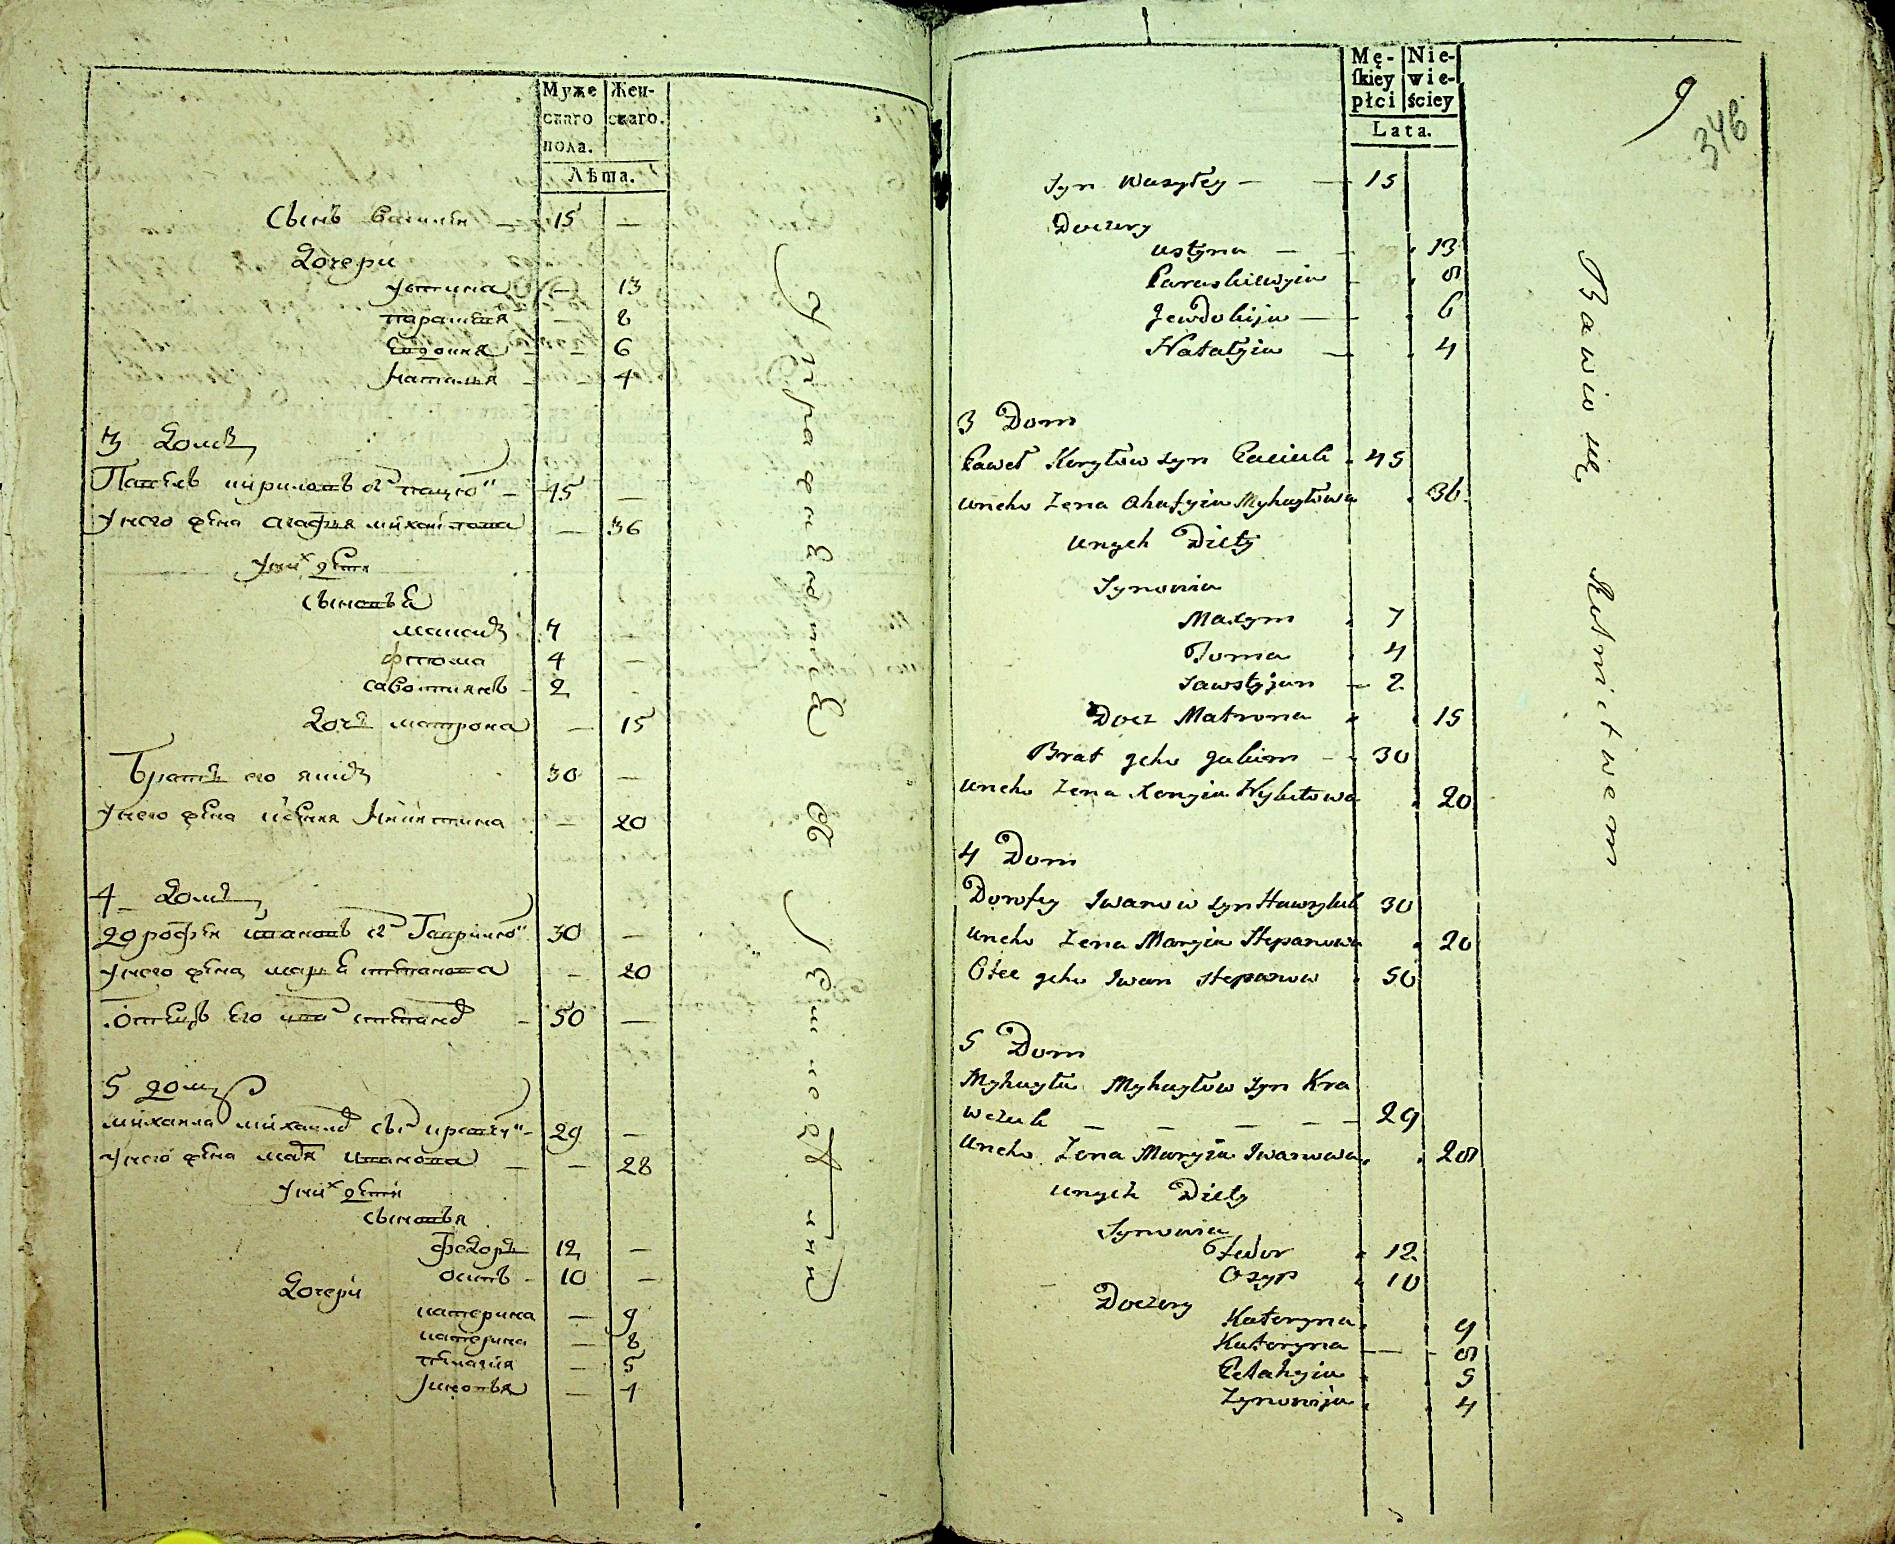 Муже Жен-
скаго скаго.
пола.
Лѣта.
Сынъ василий — 15 —
Дочери
устина — 13
параския — 8
Евдокия — 6
наталия — 4
3 Домъ
Павелъ кириловъ сн пацко — 45 —
у него жена агафия михайлова — 36
у них дети
сыновья
максимъ 7 —
фтома 4 —
савостиянъ — 2 -
Дочь матрона — 15
Братъ его якимъ 30 —
у него жена ксения Никитина — 20
4 Домъ
дорофей ивановъ сн Гаврилю 30 —
у него жена марья степанова — 20
отецъ его иван степановъ — 50 —
5 домъ
михайла михайловъ сын кравчу — 29 —
у него жена мария иванова — — 28
у них дети
сыновья
федоръ 12 —
осипъ - 10 —
Дочери
катерина — 9
катерина — 8
пелагия — 5
зиновья — 4
Упражняется В
Mę- Nie-
ſkiey wie-
płci ściey
Lata.
9
346
Syn Wasyley — — 15
Doczery
Ustyna — 13
Paraskiewyia 8
Jewdokija — 6
Natalyia — 4
3 Dom
Paweł Kyryłow syn Paciuk 45
uneho Zena Ahafyia Myhayłowa 36
unych Dity
Synowia
Maxym 7
Toma 4
Sawstyjan — 2
Docz Matrona 15
Brat jeho Jakim — 30
uneho Zena Xenyia Nykitowa 20
4 Dom
Dorofey Iwanow syn Hawryluk 30
uneho Zena Maryia Stepanowa 20
Otec jeho Iwan Stepanow 50
5 Dom
Myhayła Myhayłow syn Kra
wczuk — — — — — 29
uneho Zena Maryia Iwanowa 28
unych Dity
Synowia
Fedor 12
Osyp 10
Doczery
Kateryna 9
Kateryna — — 8
Pelahyia 5
Zynowija 4
Bawio się Rolnictwem